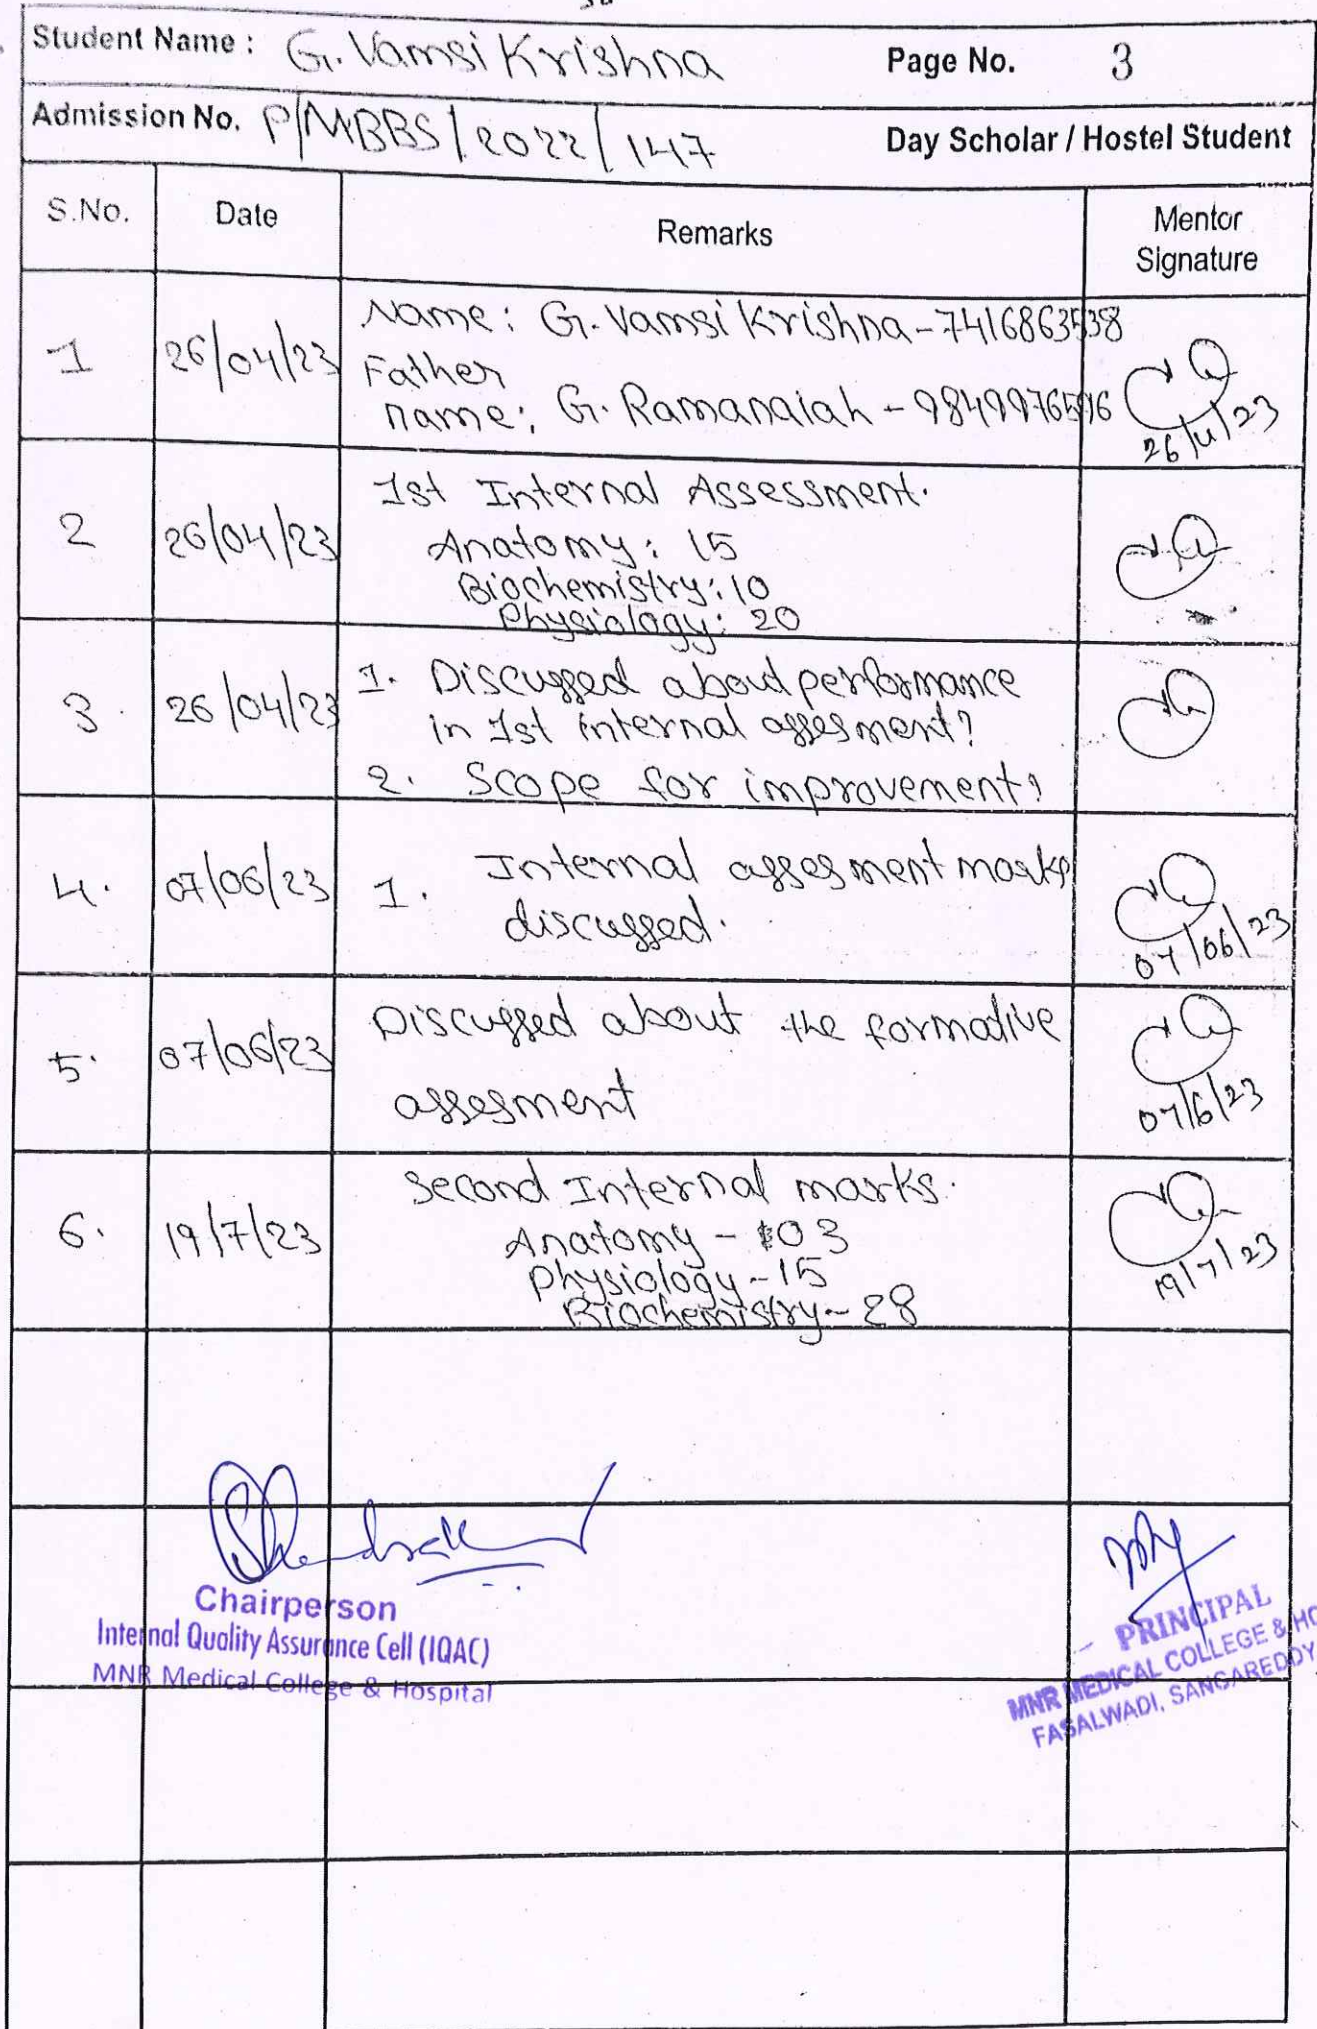 Student Name : G. Vamsi Krishna Page No. 3
Admission No. P/MBBS/2022/147 Day Scholar / Hostel Student
S.No. Date Remarks Mentor Signature
1 26/04/23 Name: G. Vamsi Krishna - 7416863538
Father
name: G. Ramanaiah -
26/4/23
2 26/04/23 1st Internal Assessment.
Anatomy: 15
Biochemistry: 10
Physiology: 20
3. 26/04/23 1. Discussed about performance
in 1st internal assesment?
2. Scope for improvement?
4. 07/06/23 1. Internal assesment marks
discussed.
07/06/23
5. 07/06/23 Discussed about the formative
assesment
07/6/23
6. 19/7/23 Second Internal marks.
Anatomy - 03
Physiology - 15
Biochemistry - 28
19/7/23
Chairperson
Internal Quality Assurance Cell (IQAC)
MNR Medical College & Hospital
PRINCIPAL
MNR MEDICAL COLLEGE & HO
FASALWADI, SANGAREDDY